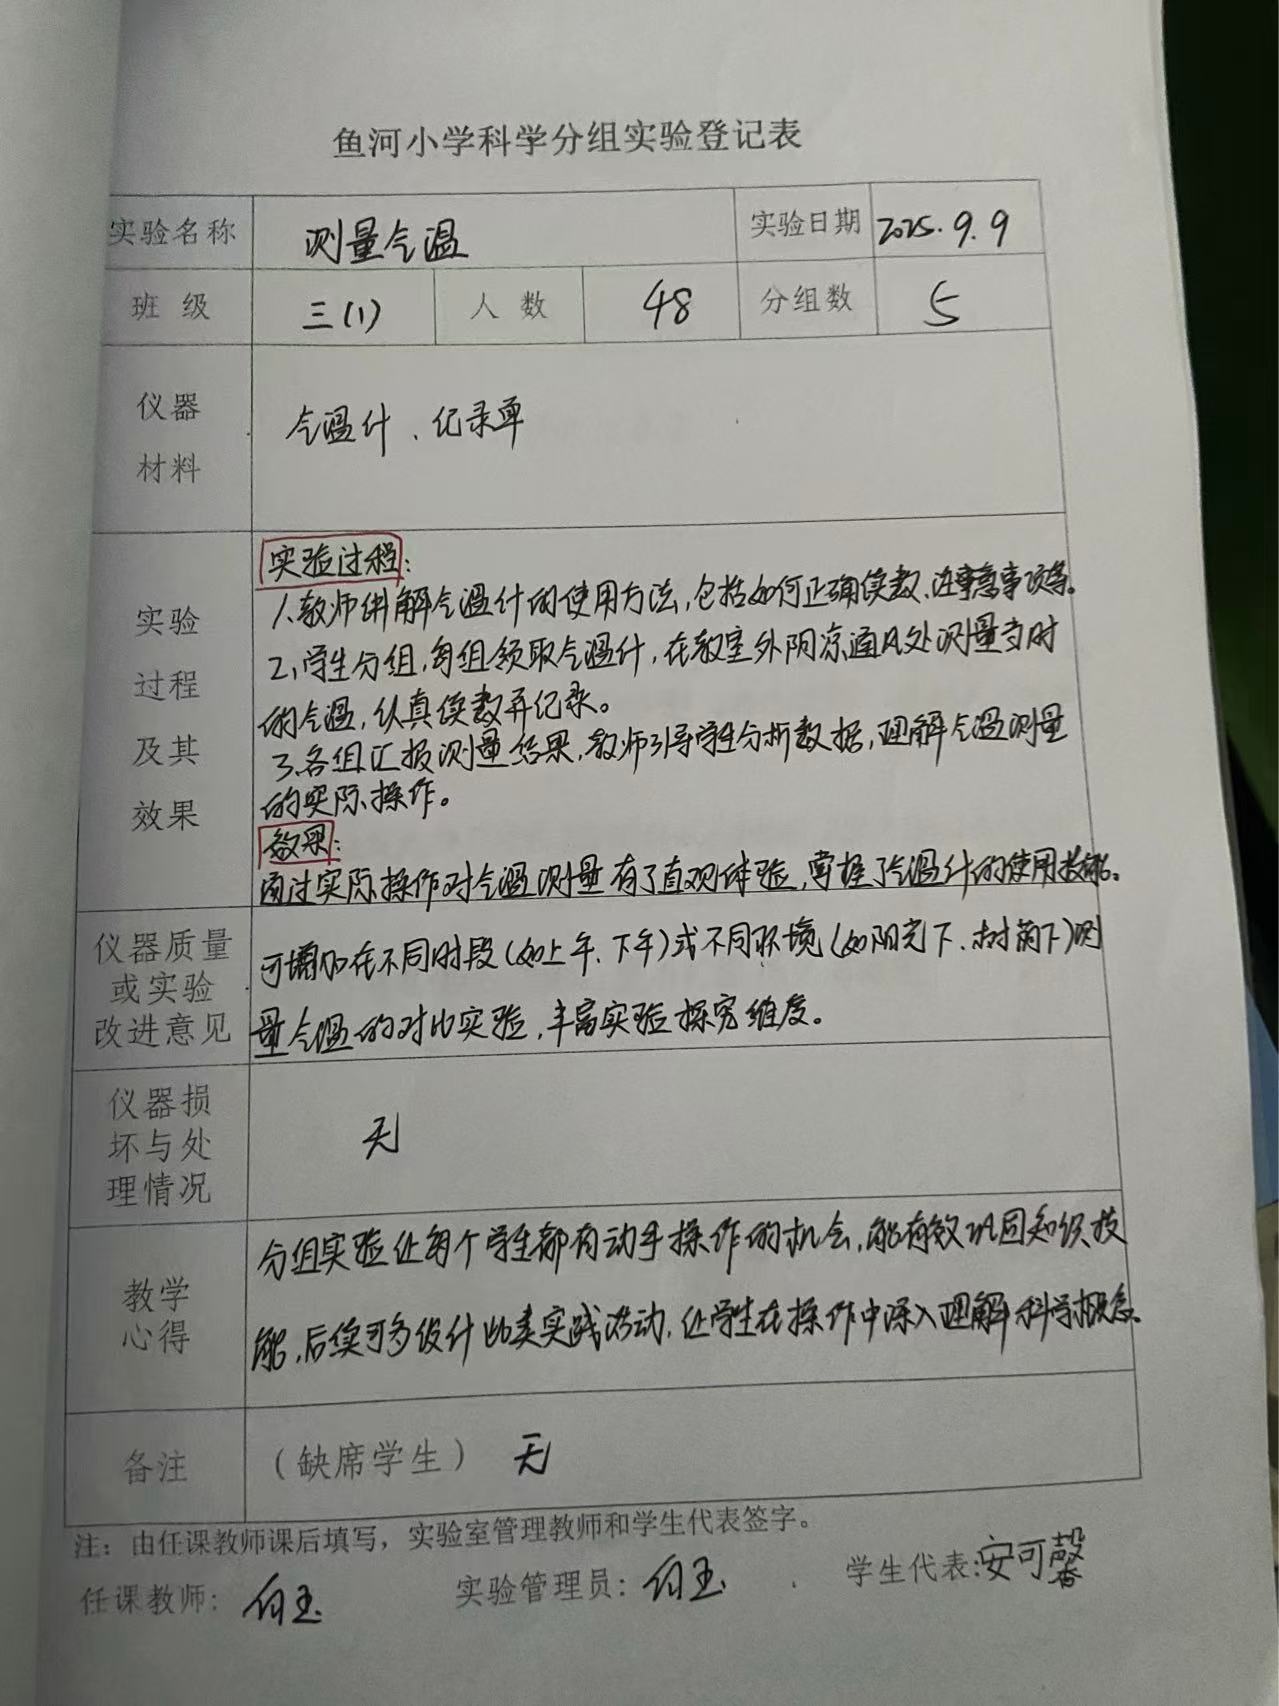 鱼河小学科学分组实验登记表
实验名称 测量气温 实验日期 2025.9.9
班 级 三(1) 人 数 48 分组数 5
仪器
材料
气温计、记录单
实验
过程
及其
效果
实验过程:
1.教师讲解气温计的使用方法,包括如何正确读数、注意事项等。
2.学生分组,每组领取气温计,在教室外阴凉通风处测量当时
的气温,认真读数并记录。
3.各组汇报测量结果,教师引导学生分析数据,理解气温测量
的实际操作。
效果:
通过实际操作对气温测量有了直观体验,掌握了气温计的使用技能。
仪器质量
或实验
改进意见
可增加在不同时段(如上午、下午)或不同环境(如阳光下、树荫下)测
量气温的对比实验,丰富实验探究维度。
仪器损
坏与处
理情况
无
教学
心得
分组实验让每个学生都有动手操作的机会,能有效巩固知识技
能,后续可多设计此类实践活动,让学生在操作中深入理解科学概念。
备注 (缺席学生) 无
注:由任课教师课后填写,实验室管理教师和学生代表签字。
任课教师: 白玉 实验管理员: 白玉 学生代表:安可馨